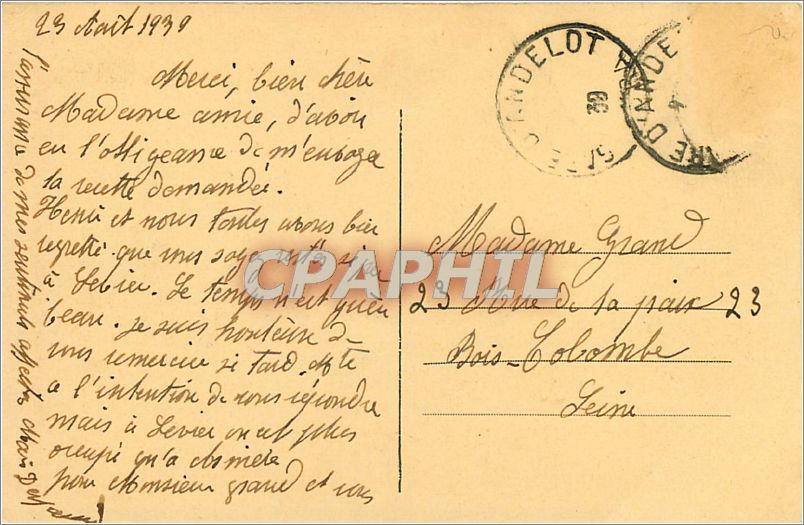 23 Août 1939
Merci, bien chère
Madame amie, d'avoir
eu l'obligeance de m'envoyer
la recette demandée.
Henri et nous toutes avons bien
regretté que vous soyez restés si peu
à Levier. Le temps n'est guère
beau. Je suis honteuse de
vous remercier si tard.
a l'intention de vous répondre
mais à Levier on est plus
occupé qu'à
pour Monsieur Grand et vous
l'assurance de mes sentiments affect.
Madame Grand
23 Rue de la paix 23
Bois-Colombe
Seine
D'ANDELOT
39
CPAPHIL